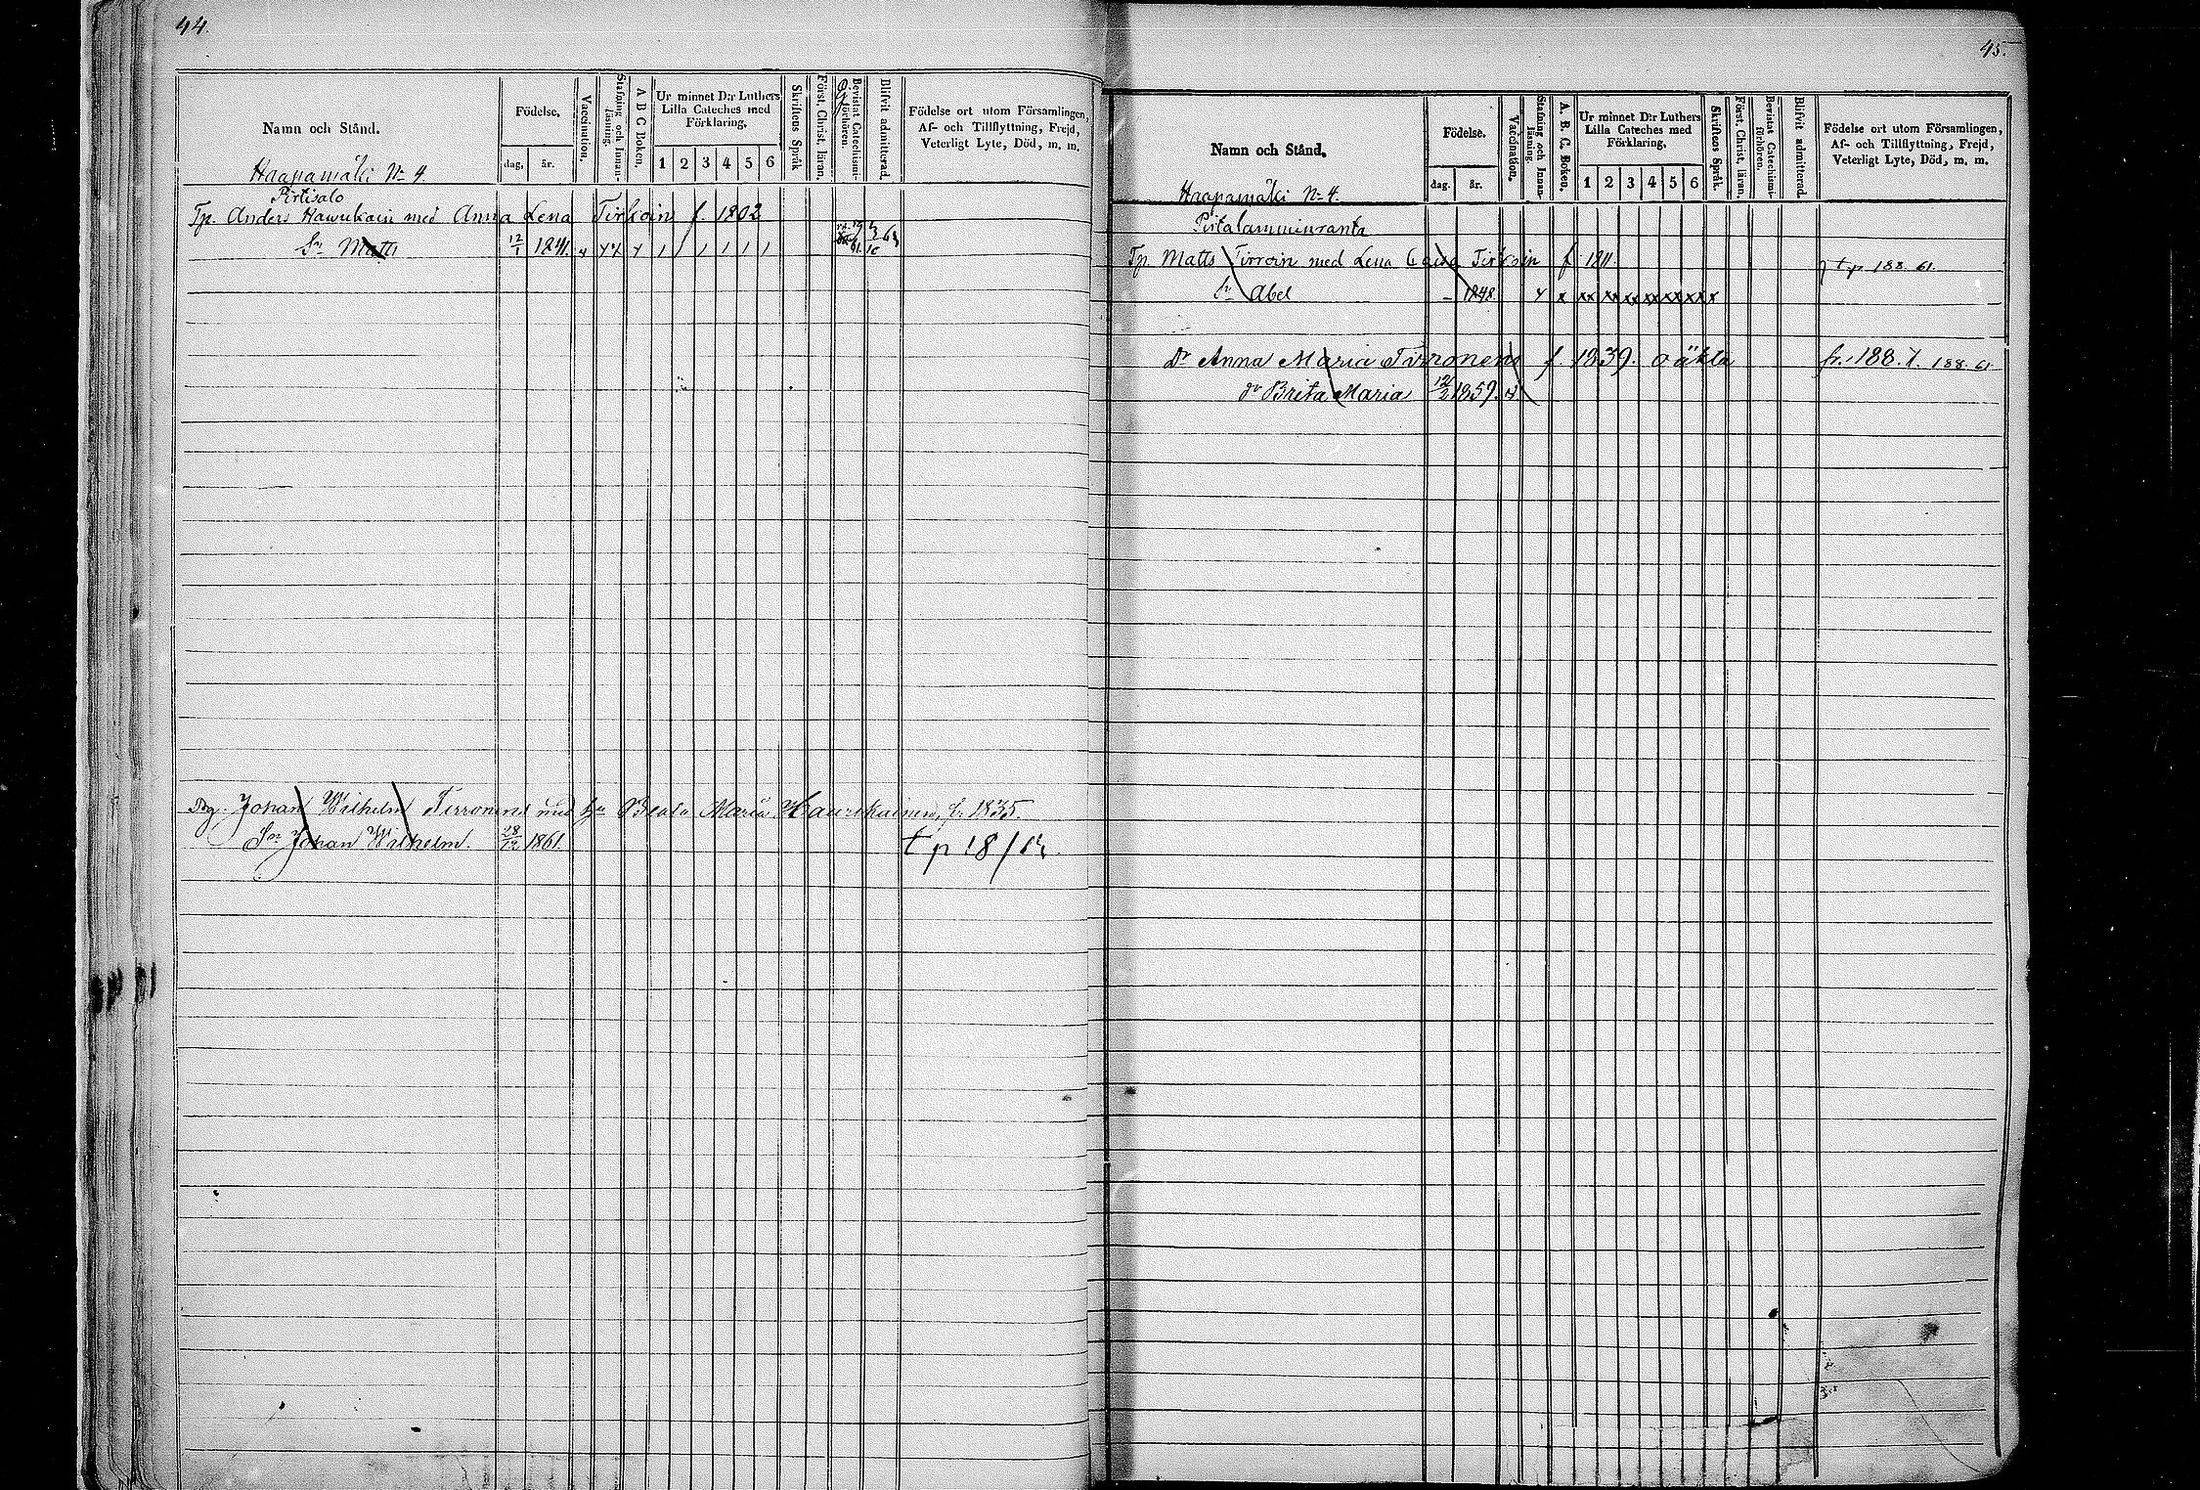 44.
Namn och Stånd.
Födelse.
dag. år.
Vaccination.
Stafning och Innan-läsning.
A B C Boken.
Ur minnet D:r Luthers
Lilla Cateches med
Förklaring.
1 2 3 4 5 6
Skriftens Språk
Först. Christ. läran.
Bevistat Catechismi-förhören.
Blifvit admitterad.
Födelse ort utom Församlingen,
Af- och Tillflyttning, Frejd,
Veterligt Lyte, Död, m. m.
Haapamäki N 4.
Pirtisalo
Tp. Anders Haurukain med Anna Lena Tirkoin f. 1802
Sn Matts 12/1 1841.
Johan Wilhelm Tirronen med hu Beata Maria Haurukainen, f. 1835.
Sn Johan Wilhelm. 28/12 1861. tp 18/
45.
Namn och Stånd.
Födelse.
dag. år.
Vaccination.
Stafning och Innan-läsning.
A. B. C. Boken.
Ur minnet D:r Luthers
Lilla Cateches med
Förklaring.
1 2 3 4 5 6
Skriftens Språk.
Först. Christ. läran.
Bevistat Catechismi-förhören.
Blifvit admitterad
Födelse ort utom Församlingen,
Af- och Tillflyttning, Frejd,
Veterligt Lyte, Död, m. m.
Haapamäki N 4.
Tp. Matts Tirroin med Lena Caisa Tirkoin f 1811. tp 188. 61.
Sn Abel - 1848. x x xx xx xx xx xx xx x
Dr Anna Maria Tirronen f. 1839. oäkta fr. 188. 188. 61.
dr Brita Maria 12/2 1859.